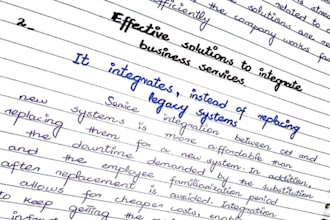 efficiently
the company works fas
solutions are
related to
2_
Effective solutions to integrate
business services
It integrates, instead of replacing
legacy systems
Service integration between old and
new systems is more affordable than
replacing them for a new system. In addition,
the downtime demanded by the substitution
and the employee familiarization period
after replacement is avoided. Integration
allows for cheaper costs, enable
to keep getting the